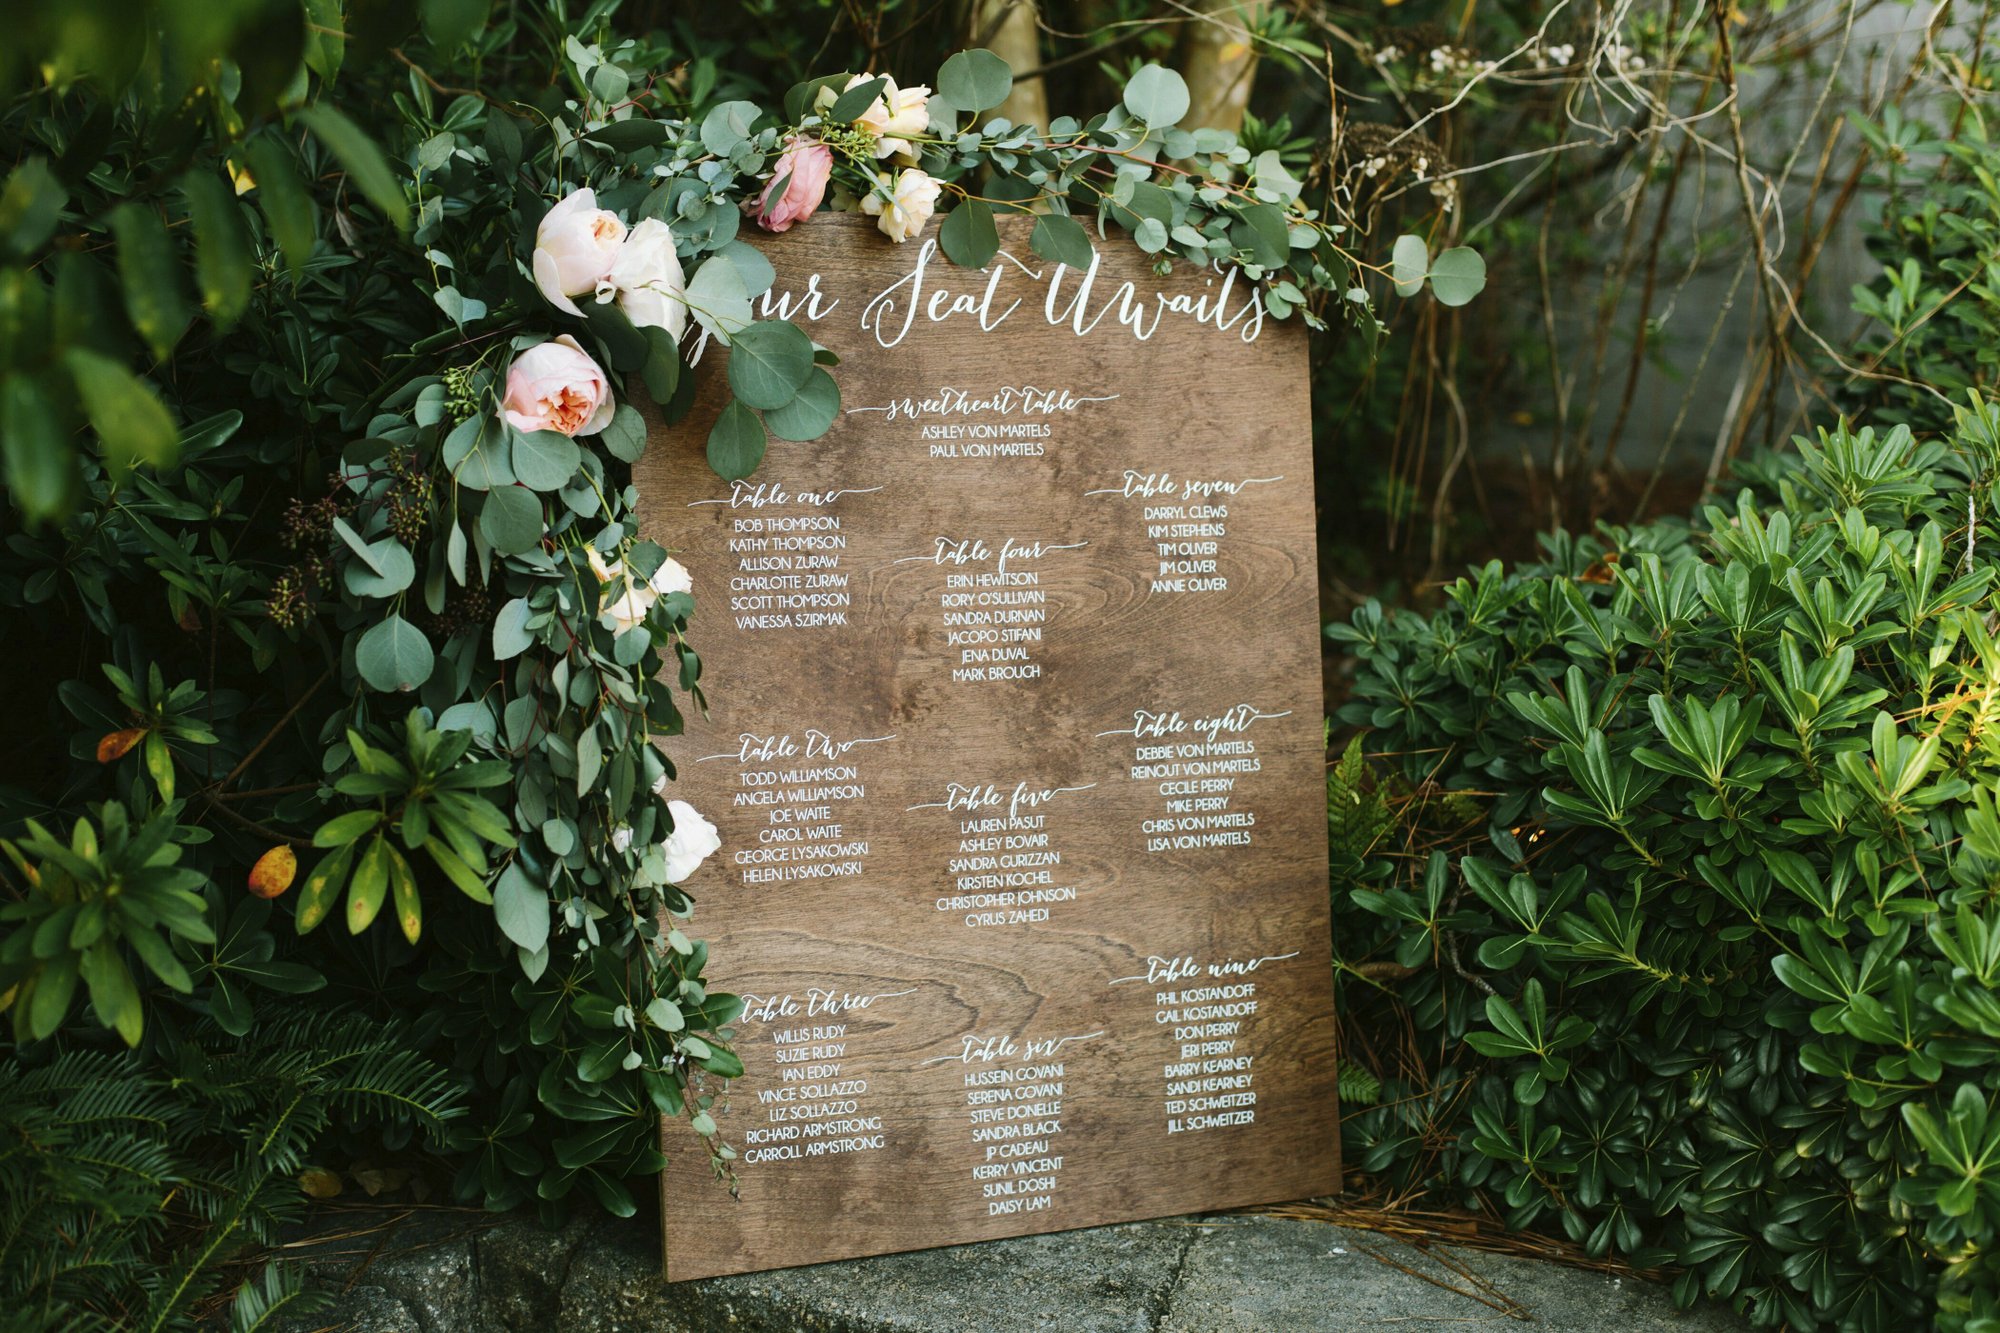 Seat Awaits
sweetheart table
ASHLEY VON MARTELS
PAUL VON MARTELS
table one
BOB THOMPSON
KATHY THOMPSON
ALLISON ZURAW
CHARLOTTE ZURAW
SCOTT THOMPSON
VANESSA SZIRMAK
table two
TODD WILLIAMSON
ANGELA WILLIAMSON
JOE WAITE
CAROL WAITE
GEORGE LYSAKOWSKI
HELEN LYSAKOWSKI
table three
WILLIS RUDY
SUZIE RUDY
IAN EDDY
VINCE SOLLAZZO
LIZ SOLLAZZO
RICHARD ARMSTRONG
CARROLL ARMSTRONG
table four
ERIN HEWITSON
RORY O'SULLIVAN
SANDRA DURNAN
JACOPO STIFANI
JENA DUVAL
MARK BROUGH
table five
LAUREN PASUT
ASHLEY BOVAIR
SANDRA GURIZZAN
KIRSTEN KOCHEL
CHRISTOPHER JOHNSON
CYRUS ZAHEDI
table six
HUSSEIN COVANI
SERENA COVANI
STEVE DONELLE
SANDRA BLACK
JP CADEAU
KERRY VINCENT
SUNIL DOSHI
DAISY LAM
table seven
DARRYL CLEWS
KIM STEPHENS
TIM OLIVER
JIM OLIVER
ANNIE OLIVER
table eight
DEBBIE VON MARTELS
REINOUT VON MARTELS
CECILE PERRY
MIKE PERRY
CHRIS VON MARTELS
LISA VON MARTELS
table nine
PHIL KOSTANDOFF
GAIL KOSTANDOFF
DON PERRY
JERI PERRY
BARRY KEARNEY
SANDI KEARNEY
TED SCHWEITZER
JILL SCHWEITZER